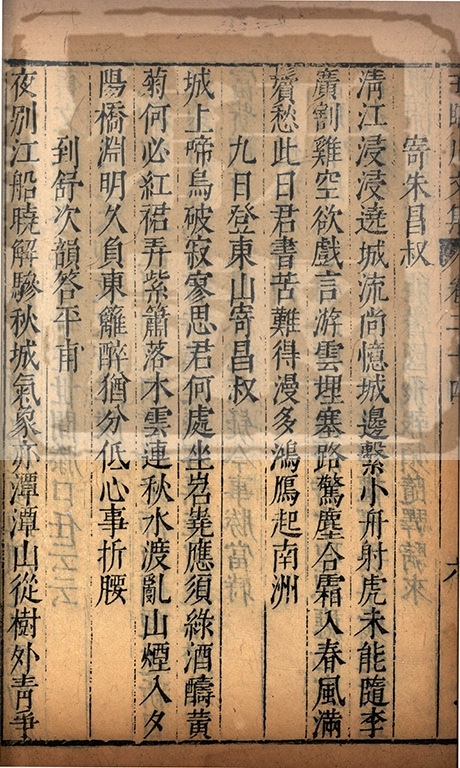 王臨川文集 卷二十四 六
寄朱昌叔
清江浸浸遶城流尚憶城邊繫小舟射虎未能隨李
廣割雞空欲戲言游雲埋塞路驚塵合霜入春風滿
鬢愁此日君書苦難得漫多鴻鴈起南洲
九日登東山寄昌叔
城上啼烏破寂寥思君何處坐岧嶤應須綠酒醻黃
菊何必紅裙弄紫簫落水雲連秋水渡亂山煙入夕
陽橋淵明久負東籬醉猶分低心事折腰
到舒次韻答平甫
夜別江船曉解驂秋城氣象亦潭潭山從樹外青爭